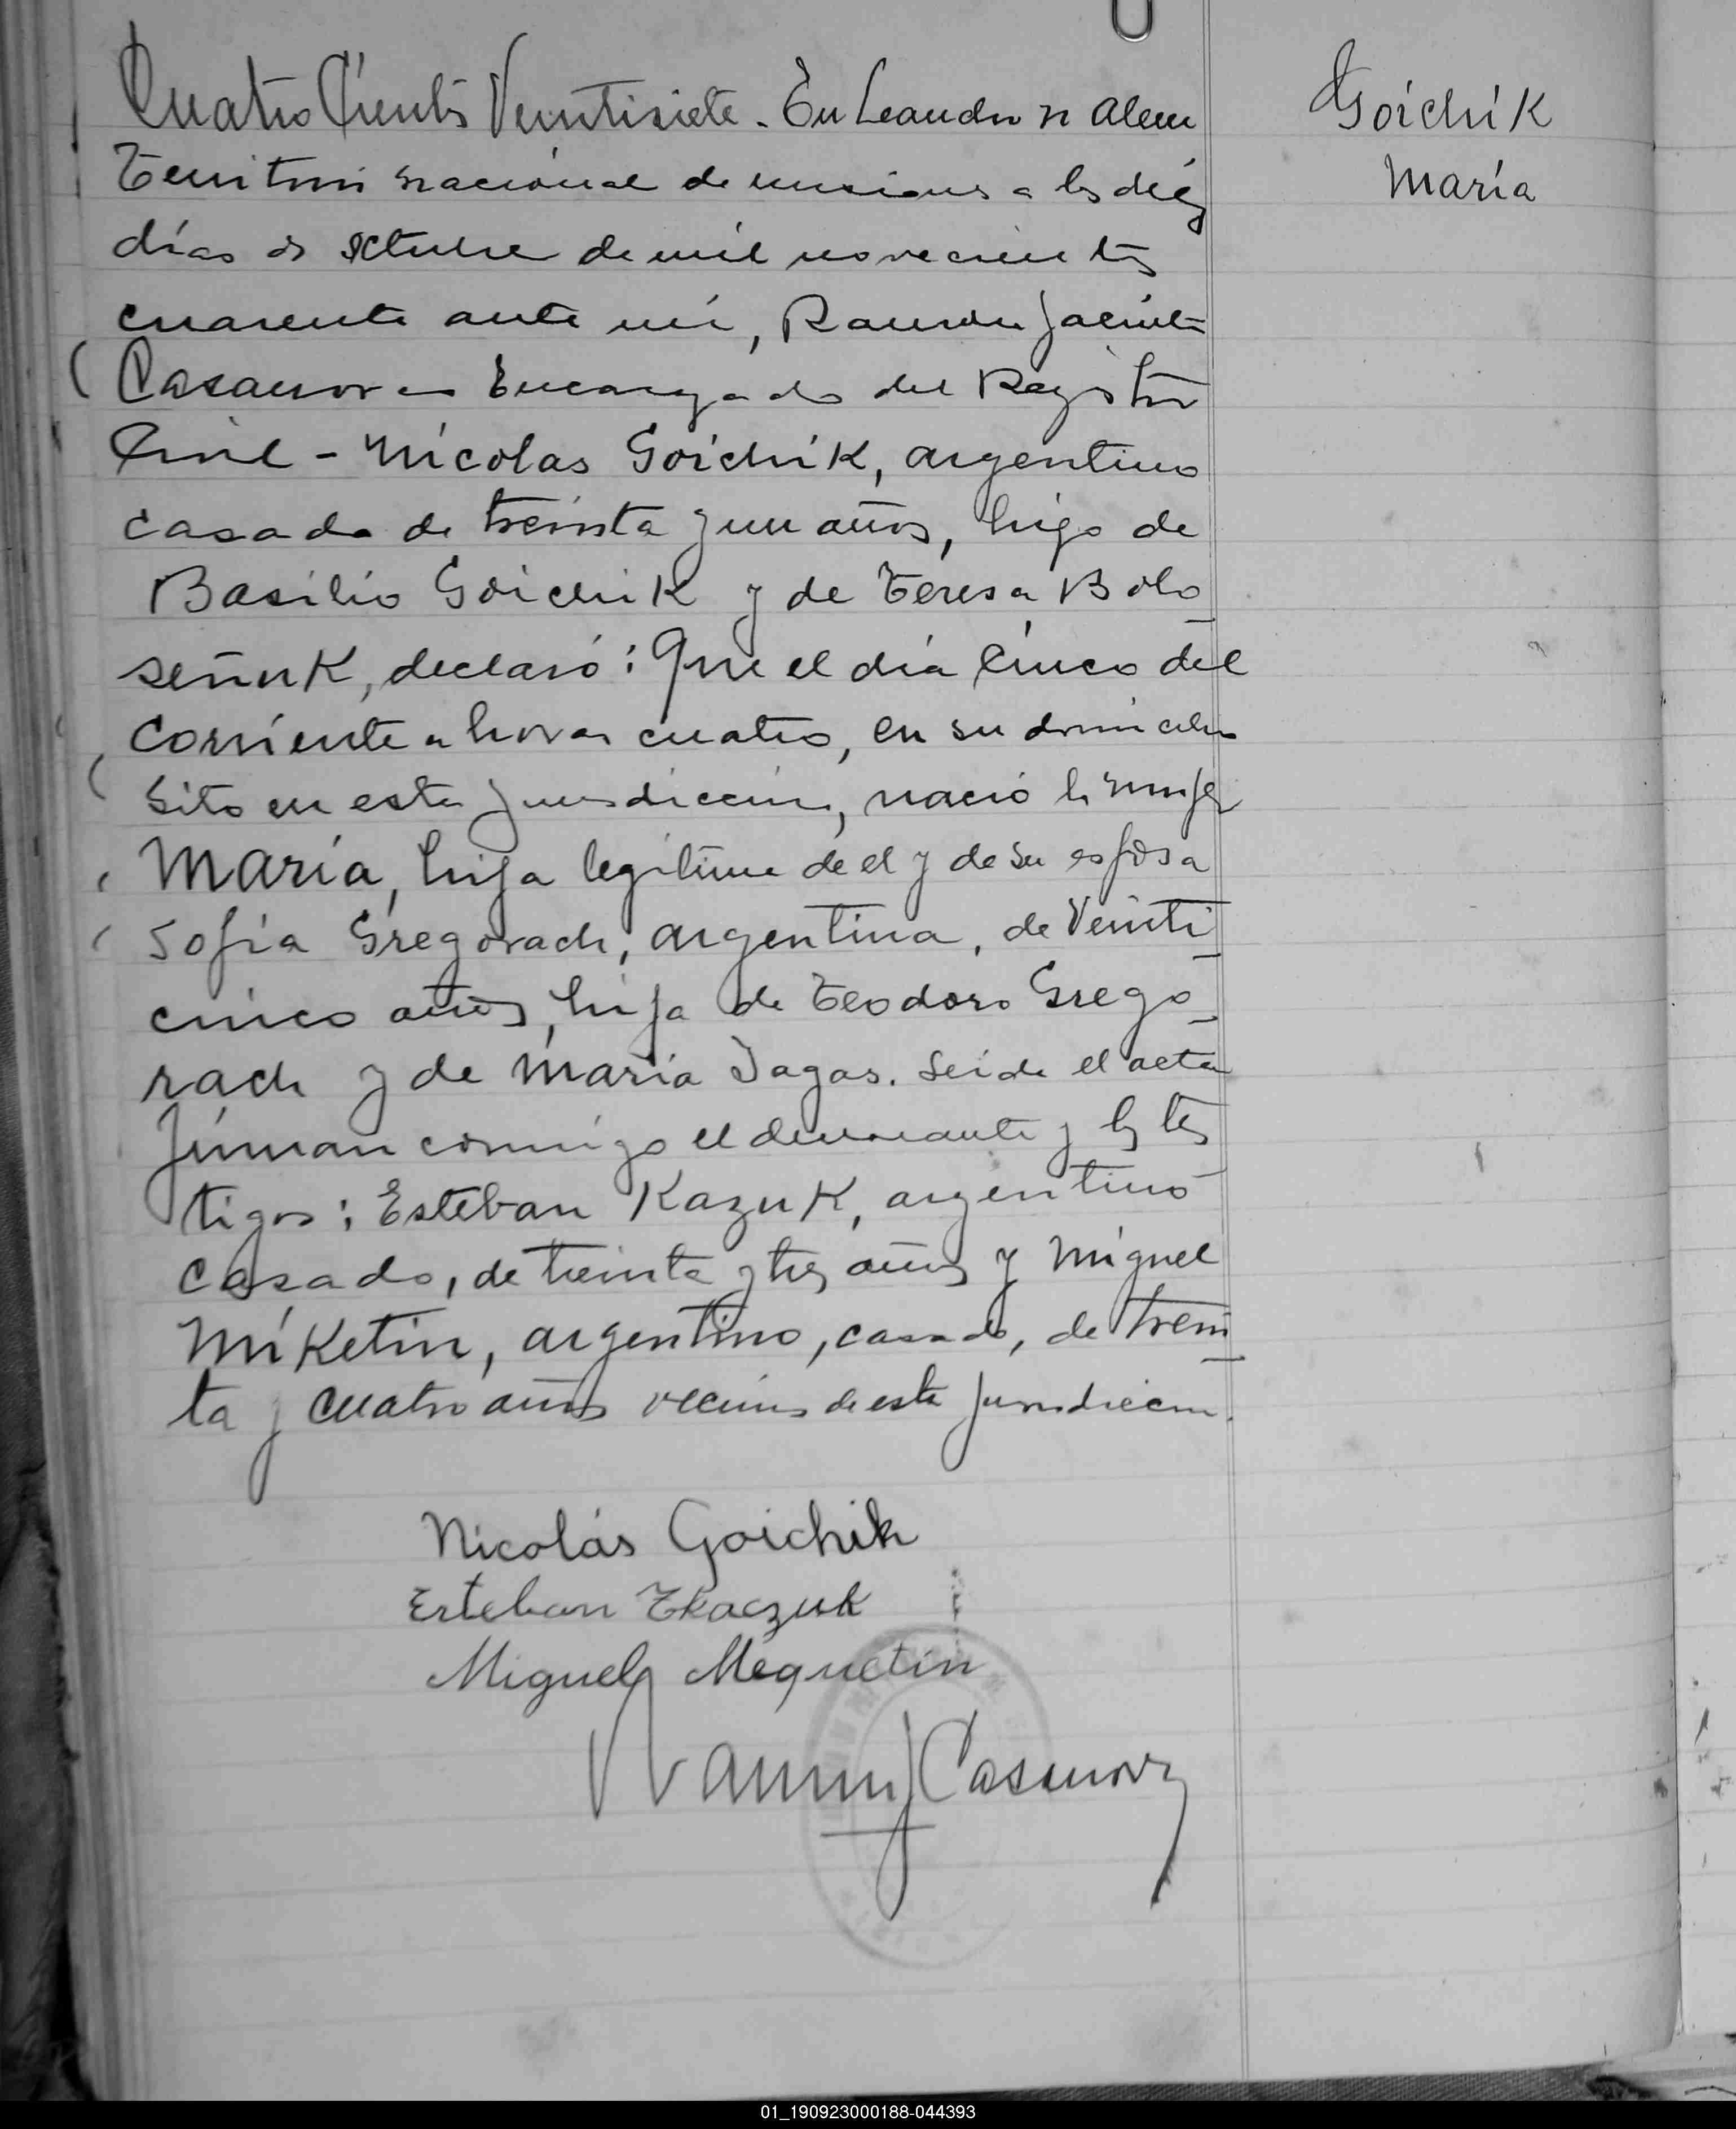 Cuatro Cientos Veintisiete. En Leandro N Alem
Goichik
Territorio Nacional de Misiones a los diéz
María
días de octubre de mil novecientos
cuarenta ante mí, Ramón Jacinto
Casanovas Encargado del Registro
Civil - Nícolas Goichik, argentino
casado de treinta y un años, hijo de
Basilio Goichik y de Teresa Bolo_
señuk, declaró: Que el día Cinco del
corriente a horas cuatro, en su domicilio
sito en esta jurisdicción, nació la mujer
María, hija legítima de el y de su esposa
Sofía Gregorach, argentina, de Veinti_
cinco años, hija de Teodoro Grego_
rach y de María Jagas. Leida el acta
firman conmigo el denunciante y los tes
tigos: Esteban Kazuk, argentino
casado, de treinta y tres años y Miguel
Miketin, argentino, casado, de trein_
ta y cuatro años vecinos de esta jurisdicción.
Nicolás Goichik
Esteban Tkaczuk
Miguel Mequetin
Ramón J Casanovas
01_190923000188-044393